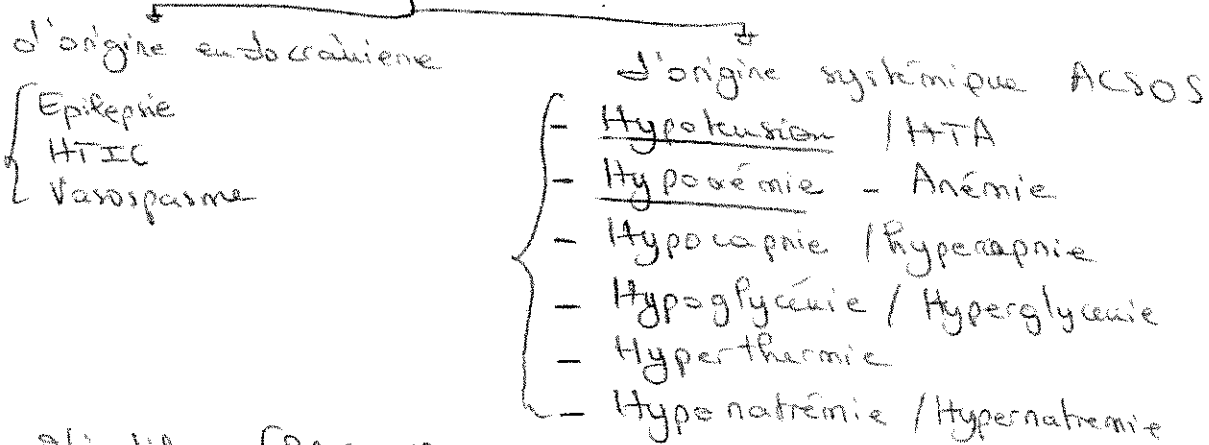 d'origine endocrâniene
Epilepsie
HTIC
Vasospasme
d'origine systémique ACSOS
- Hypotension / HTA
- Hypoxémie - Anémie
- Hypocapnie / hypercapnie
- Hypoglycémie / Hyperglycémie
- Hyperthermie
- Hyponatrémie / Hypernatremie